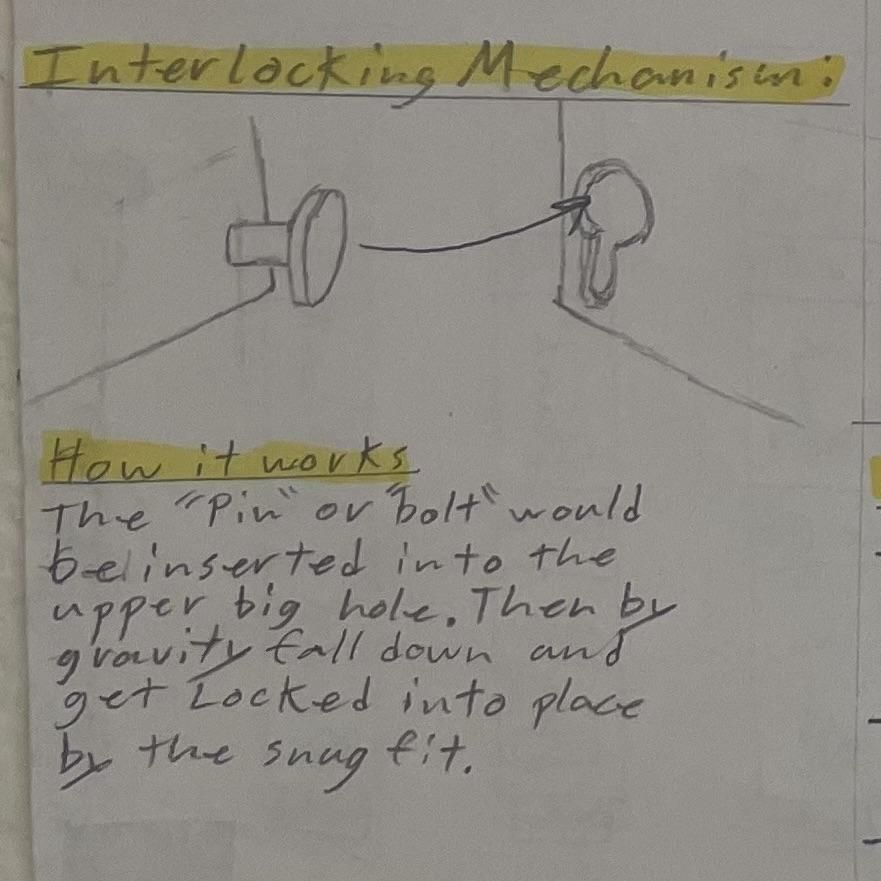 Interlocking Mechanism:
How it works
The "Pin" or "bolt" would
be inserted into the
upper big hole. Then by
gravity fall down and
get Locked into place
by the snug fit.